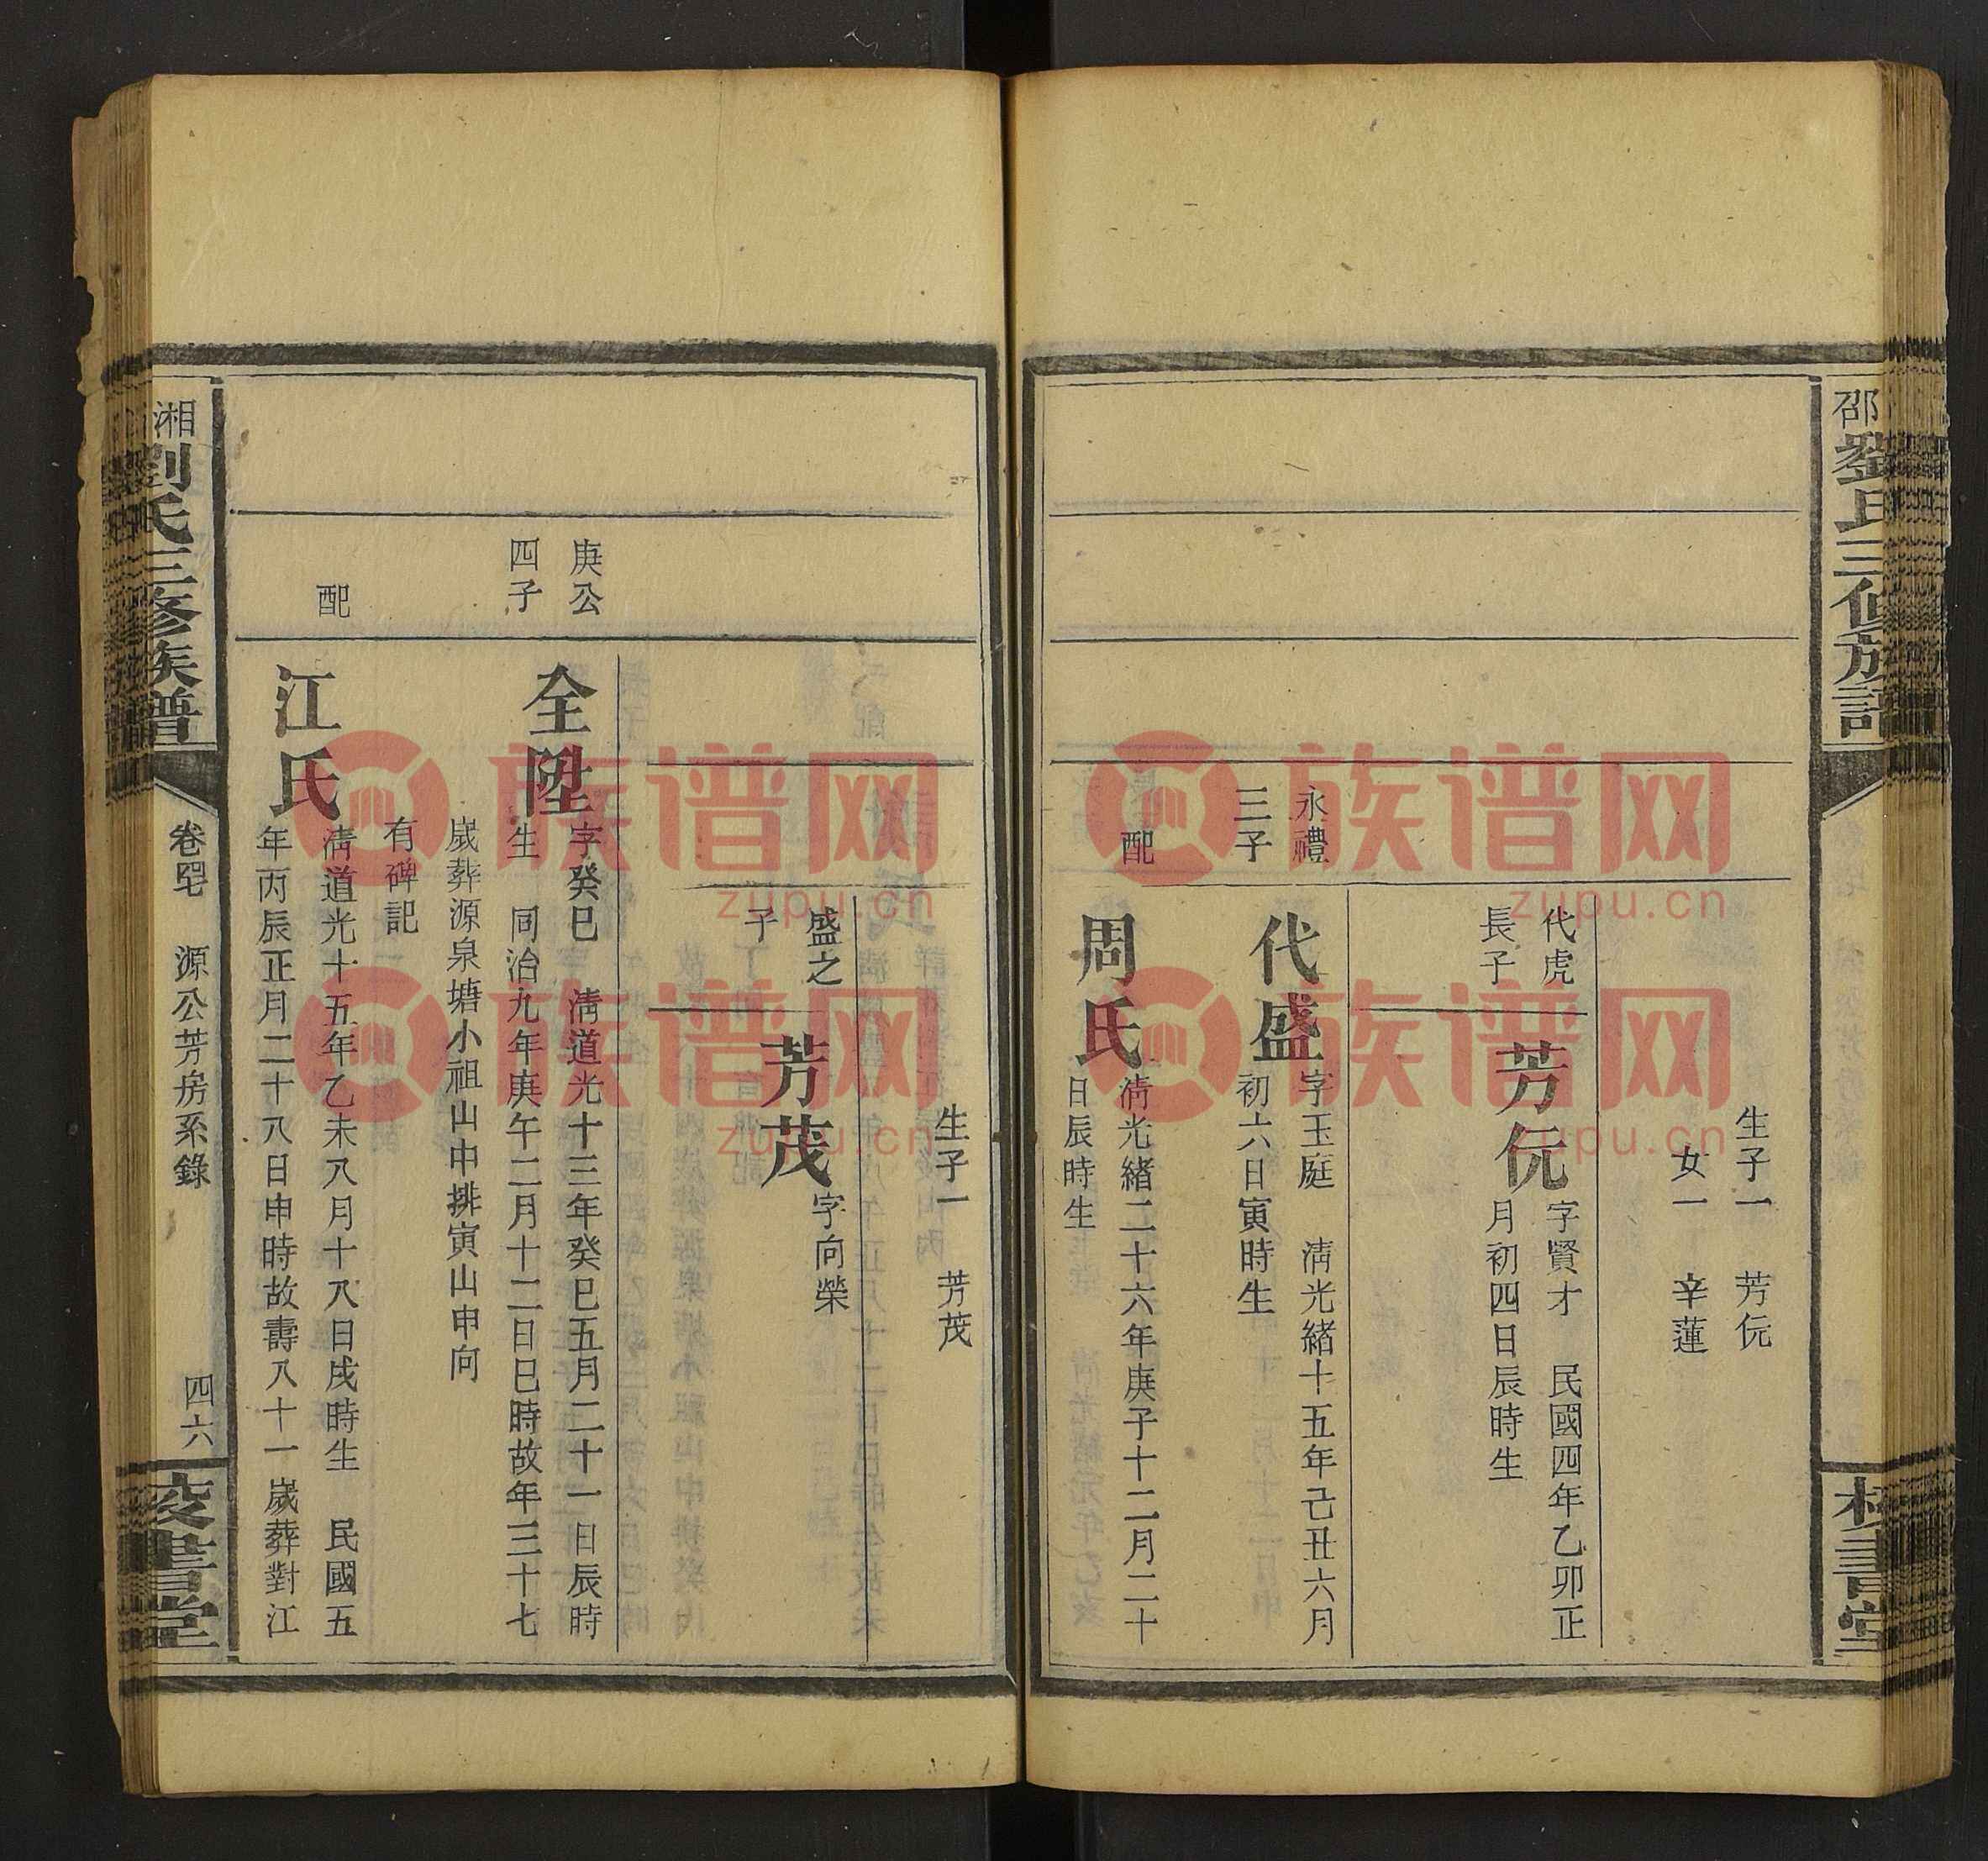 邵
劉氏三修族譜
校書堂
生子一 芳伝
女一 辛蓮
代虎
長子
芳伝
字賢才 民國四年乙卯正
月初四日辰時生
永禮
三子
代盛
字玉庭 淸光緒十五年己丑六月
初六日寅時生
配
周氏
淸光緒二十六年庚子十二月二十
日辰時生
生子一 芳茂
盛之
子
芳茂
字向榮
庚公
四子
全陞
字癸巳 淸道光十三年癸巳五月二十一日辰時
生 同治九年庚午二月十二日巳時故年三十七
歲葬源泉塘小祖山中排寅山申向
有碑記
配
江氏
淸道光十五年乙未八月十八日戌時生 民國五
年丙辰正月二十八日申時故壽八十一歲葬對江
湘
劉氏三修族譜
源公芳房系錄
四六
校書堂
族谱网
zupu.cn
族谱网
zupu.cn
族谱网
zupu.cn
族谱网
zupu.cn